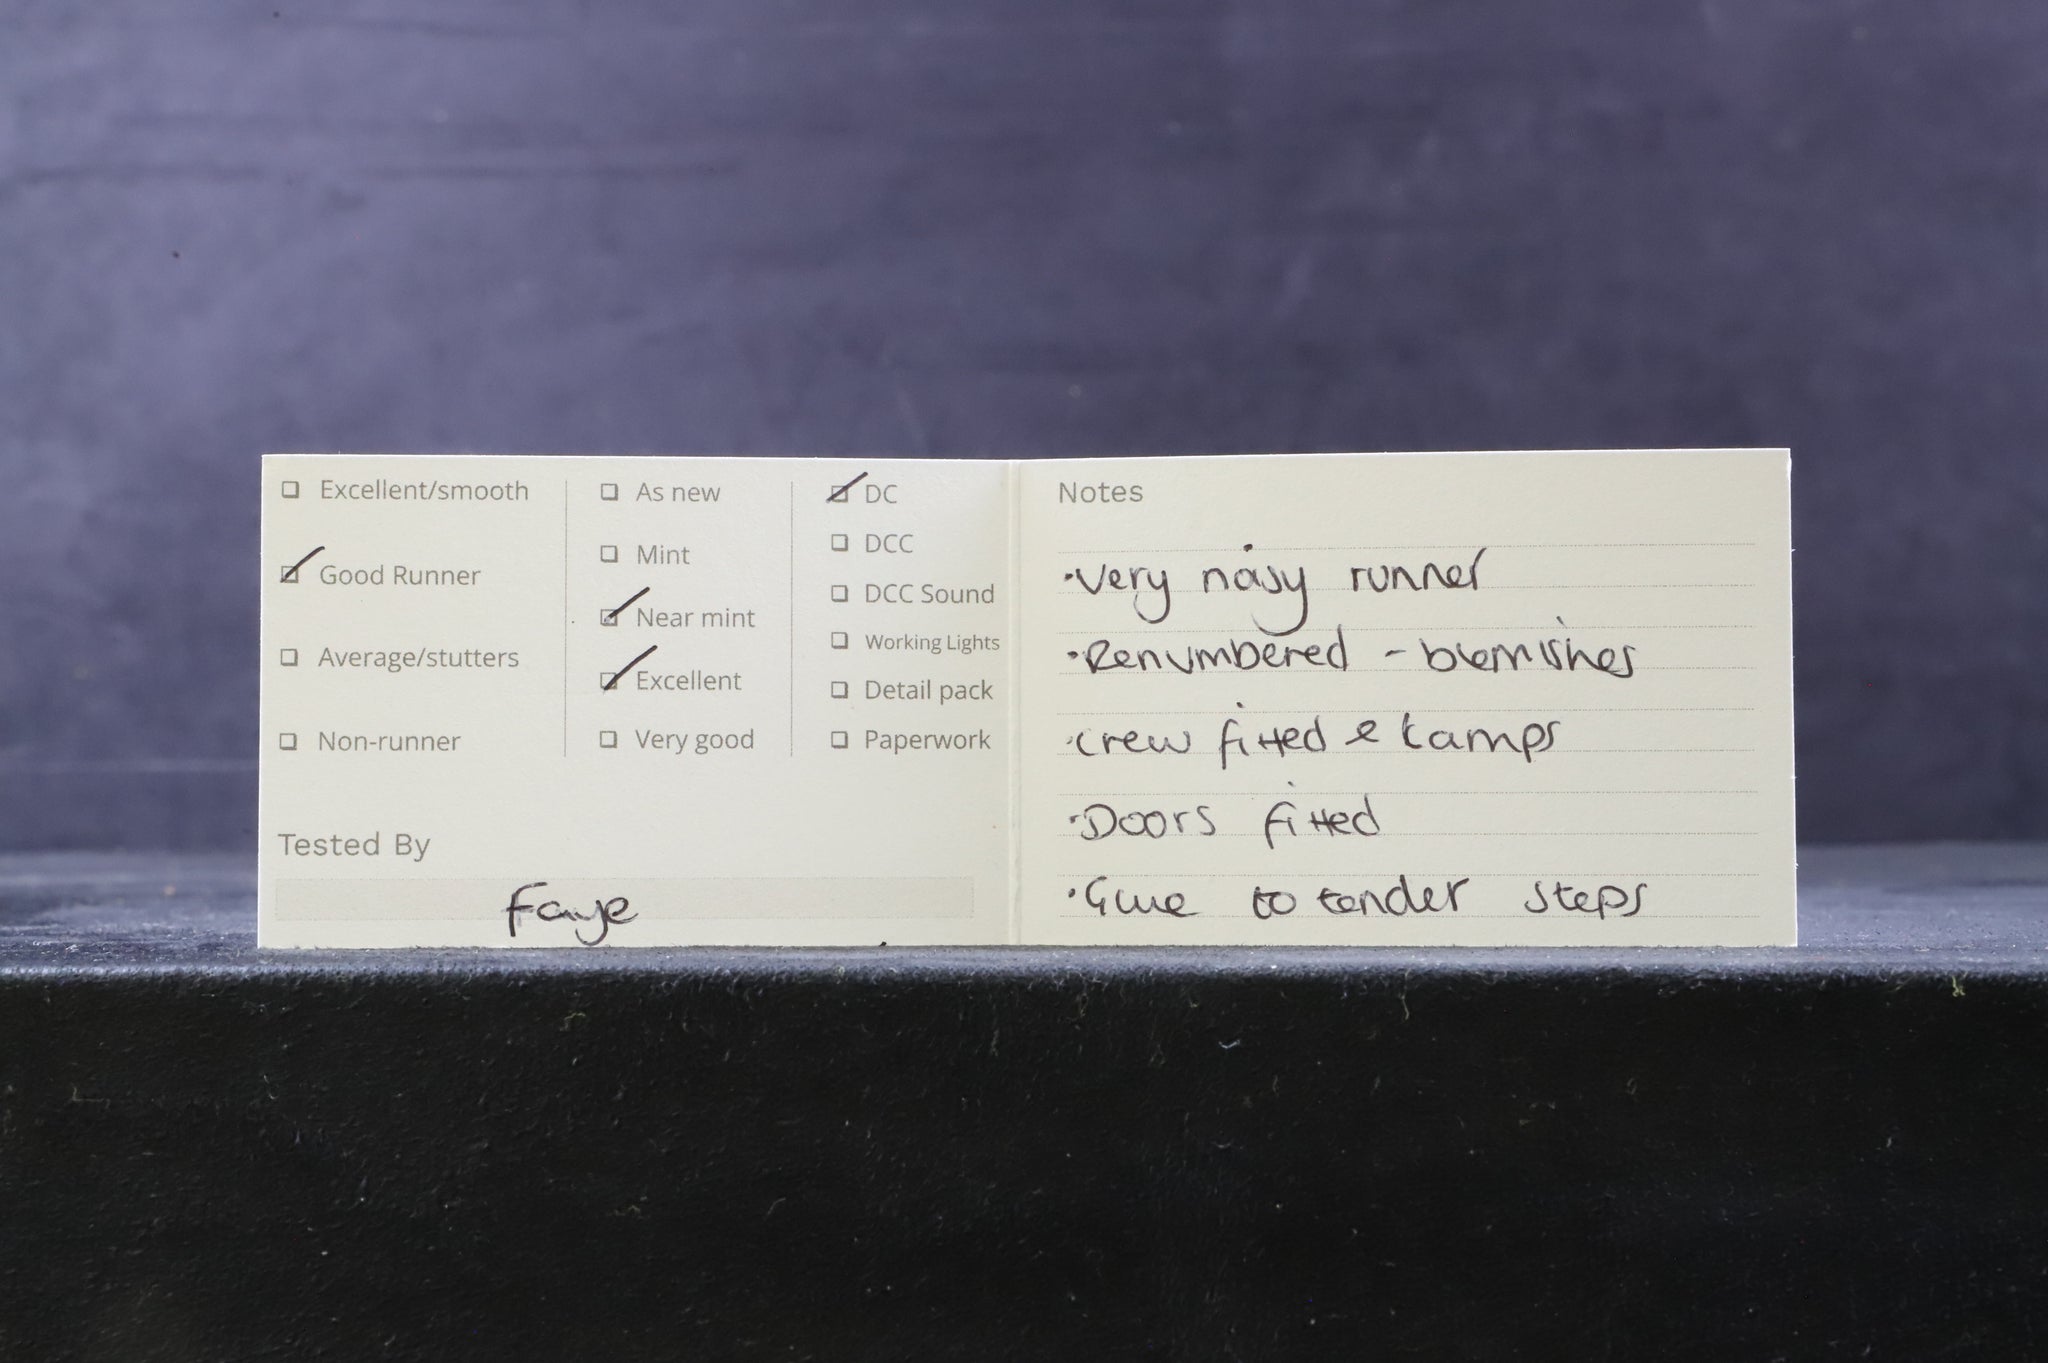 Excellent/smooth
Good Runner
Average/stutters
Non-runner
As new
Mint
Near mint
Excellent
Very good
DC
DCC
DCC Sound
Working Lights
Detail pack
Paperwork
Tested By
Faye
Notes
·Very noisy runner
·Renumbered - blemishes
·Crew fitted & Lamps
·Doors fitted
·Glue to tender steps